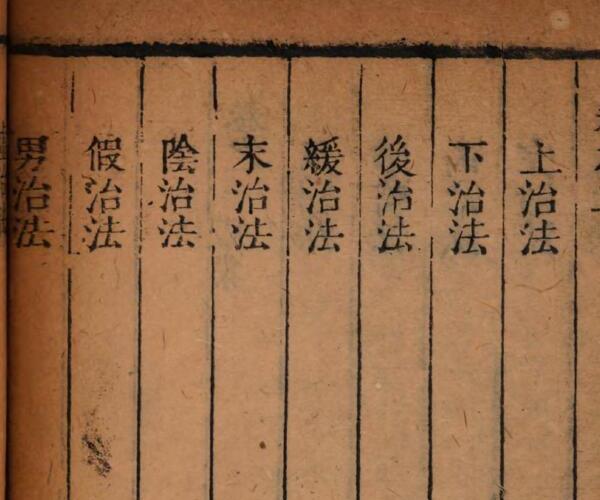 上治法
下治法
後治法
緩治法
末治法
陰治法
假治法
男治法